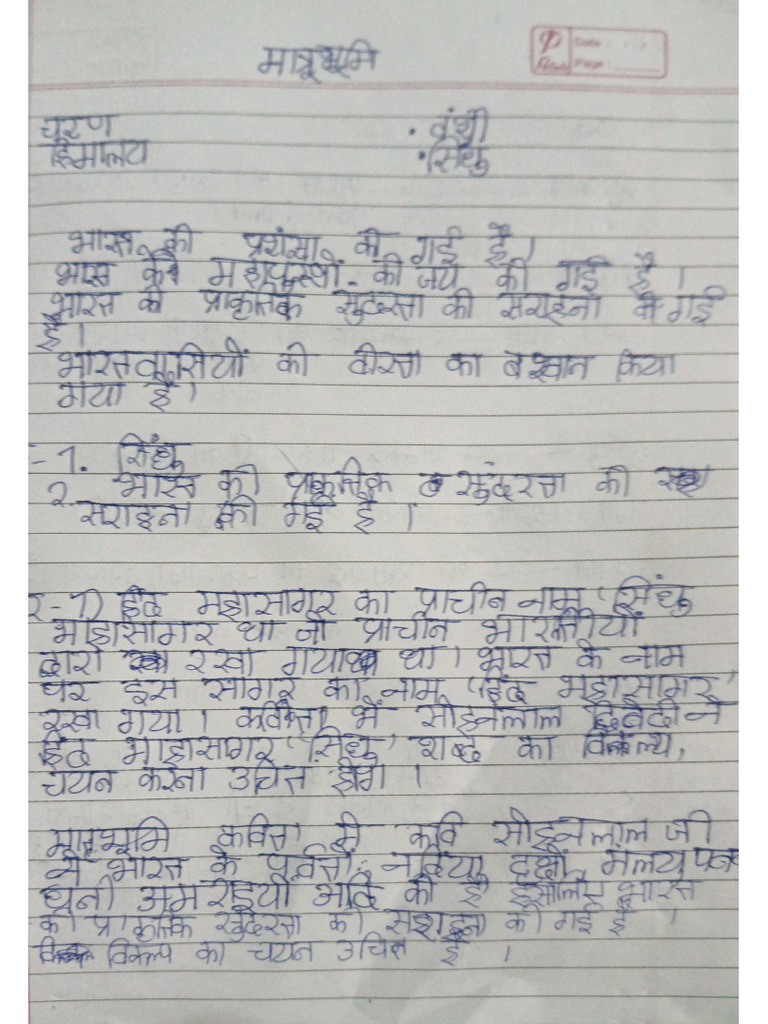 मातृभूमि
Date
Page
चरण • वंशी
हिमालय • सिंधु
भारत की प्रशंसा की गई है।
भारत के महापुरुषों की जय की गई है।
भारत की प्राकृतिक सुंदरता की सराहना की गई
है।
भारतवासियों की वीरता का बखान किया
गया है।
1. सिंधु
2. भारत की प्राकृतिक सुंदरता की
सराहना की गई है।
1) हिंद महासागर का प्राचीन नाम 'सिंधु
माहासागर था जो प्राचीन भारतीयों
द्वारा रखा गया था। भारत के नाम
पर इस सागर का नाम 'हिंद महासागर'
रखा गया। कविता में सोहनलाल द्विवेदी ने
हिंद माहासागर 'सिंधु' शब्द का विकल्प,
चयन करना उचित होगा।
मातृभूमि कविता में कवि सोहनलाल जी
ने भारत के पर्वतों, नदियों, वृक्षों, मलय पवन
घनी अमराइयों आदि की है इसलिए भारत
की प्राकृतिक सुंदरता की सराहना की गई है।
विकल्प का चयन उचित है।